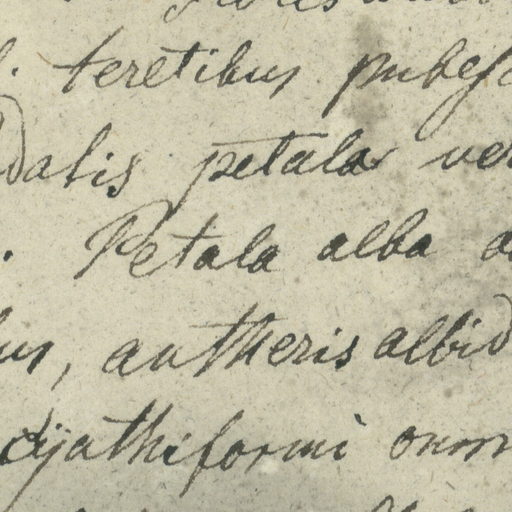 teretibus pubesc
dalis petala ver
. Petala alba a
us, antheris albid
cyathiformi omn